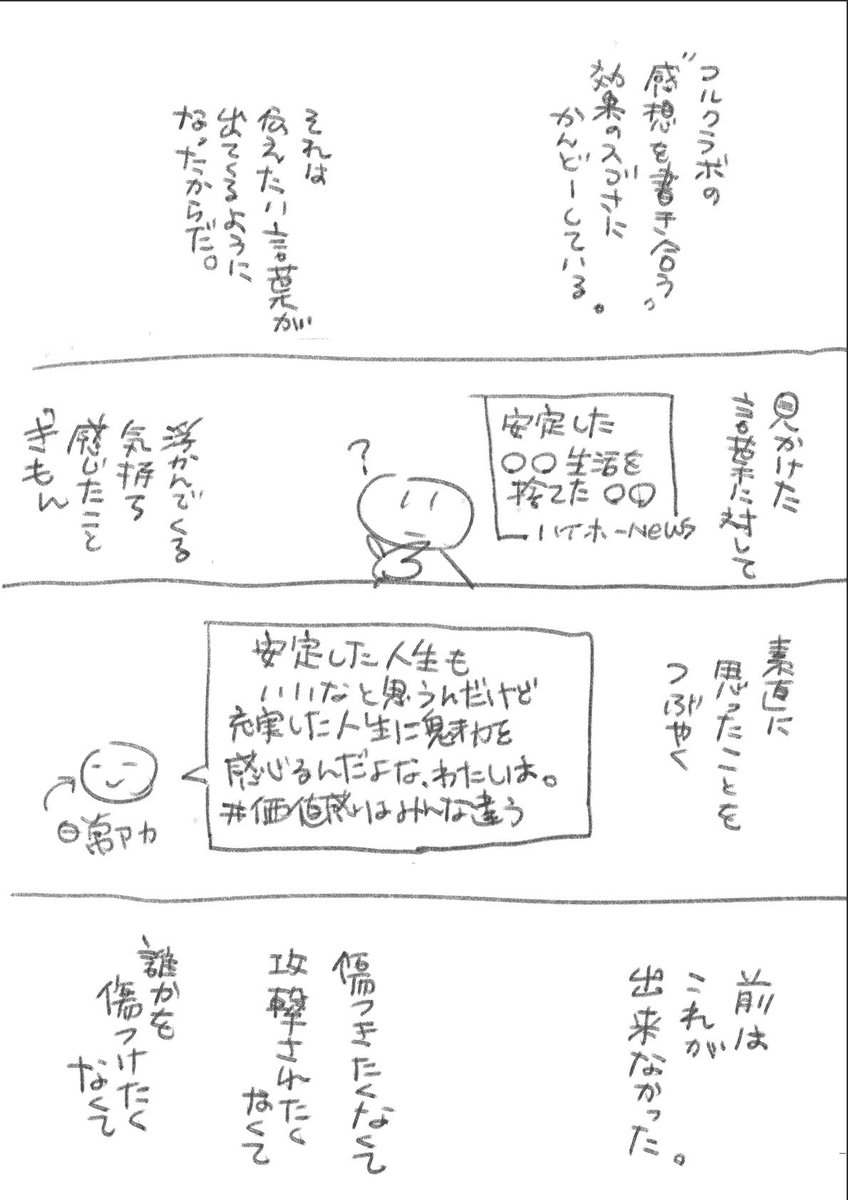 コルクラボの
"感想を書き合う"
効果のスゴさに
かんどーしている。
それは
伝えたい言葉が
出てくるように
なったからだ。
見かけた
言葉に対して
安定した
〇〇生活を
捨てた〇〇
ハイホーNEWS
?
浮かんでくる
気持ち
感じたこと
ぎもん
素直に
思ったことを
つぶやく
安定した人生も
いいなと思うんだけど
充実した人生に魅力を
感じるんだよな、わたしは。
#価値感はみんな違う
前は
これが
出来なかった。
傷つきたくなくて
攻撃されたく
なくて
誰かを
傷つけたく
なくて